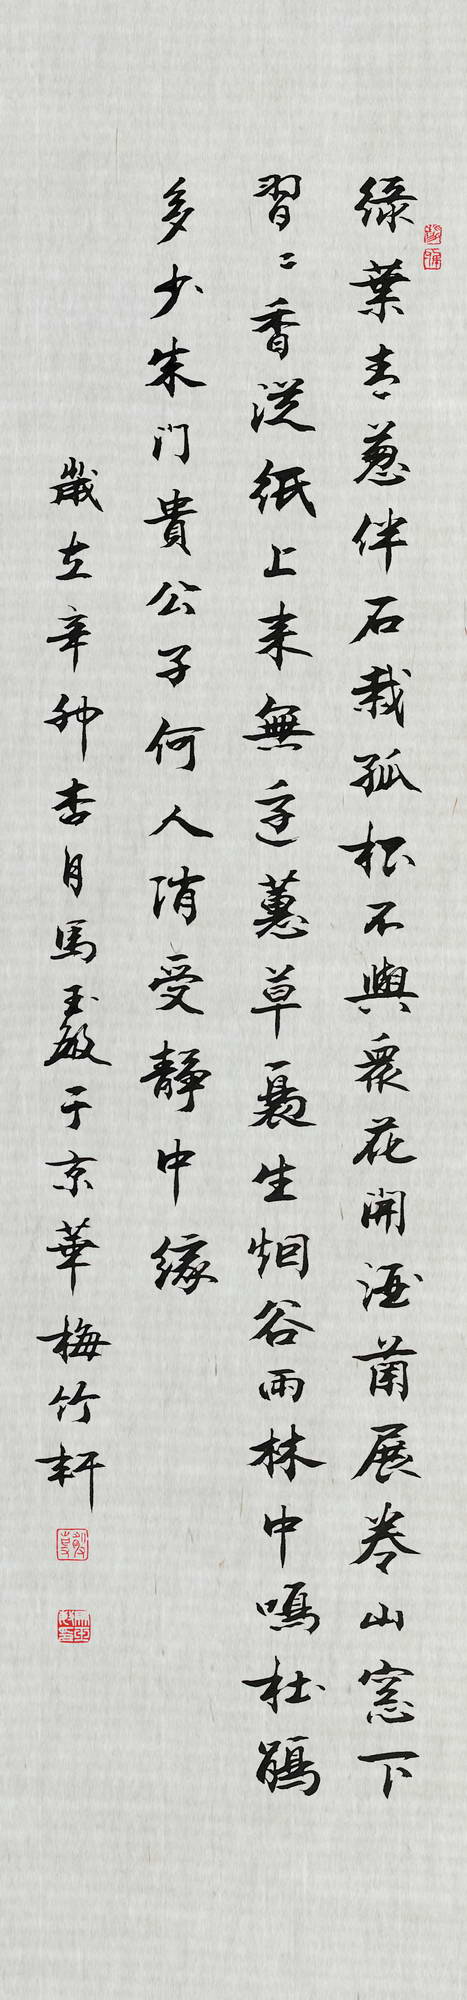 綠葉青葱伴石栽孤根不與眾花開酒蘭展卷山窗下
習〻香從紙上來無邊蕙草裊生烟谷雨林中鳴杜鵑
多少朱門貴公子何人消受靜中緣
歲在辛卯杏月馬玉敏于京華梅竹軒